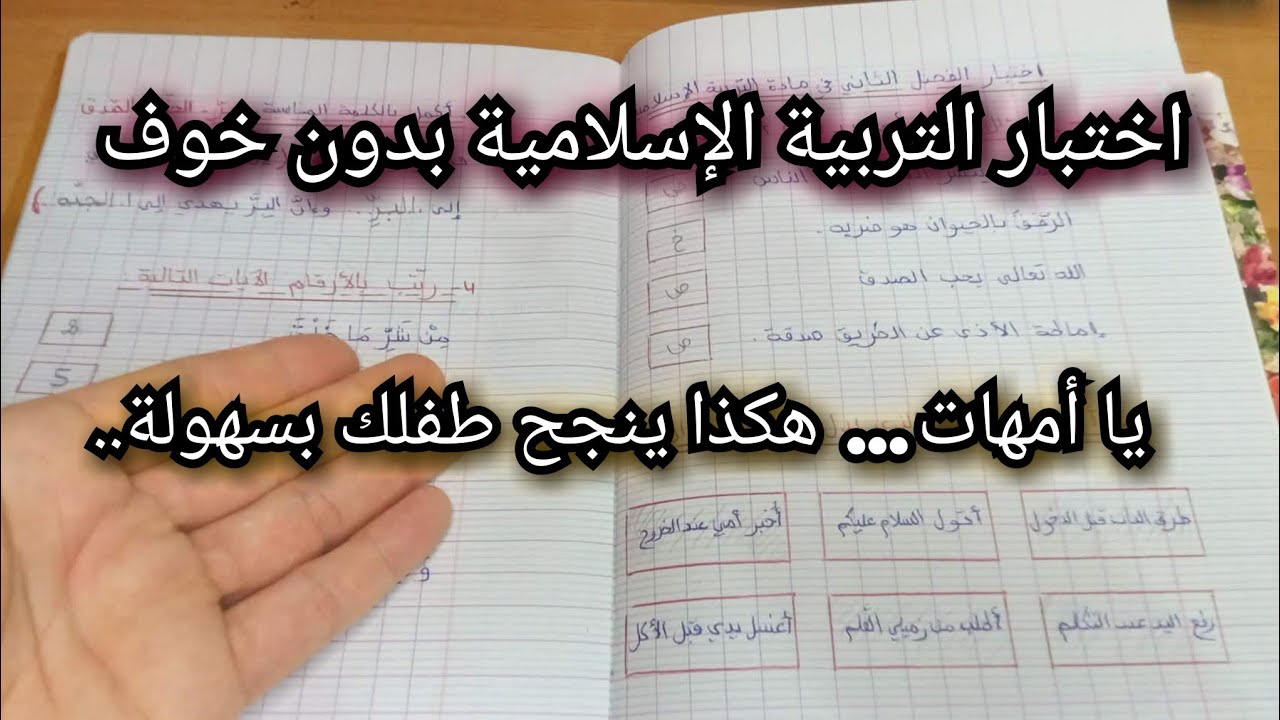 اختبار الفصل الثاني في مادة التربية الإسلامية
اختبار التربية الإسلامية بدون خوف
الناس
ص
الرّفق بالحيوان هو ضربه.
خ
الله تعالى يحب الصدق
ص
إماطة الأذى عن الطريق صدقة.
ص
يا أمهات... هكذا ينجح طفلك بسهولة..
طرق الباب قبل الدخول
أقول السلام عليكم
أخبر أمي عند الخروج
رفع اليد عند التكلم
أطلب من زميلي القلم
أغسل يدي قبل الأكل
أكمل بالكلمة المناسبة
إلى البرِّ.. وإنّ البرّ يهدي إلى الجنّة.
4- رتّب بالأرقام الآيات التالية.
مِنْ شَرِّ مَا خَلَقَ
5